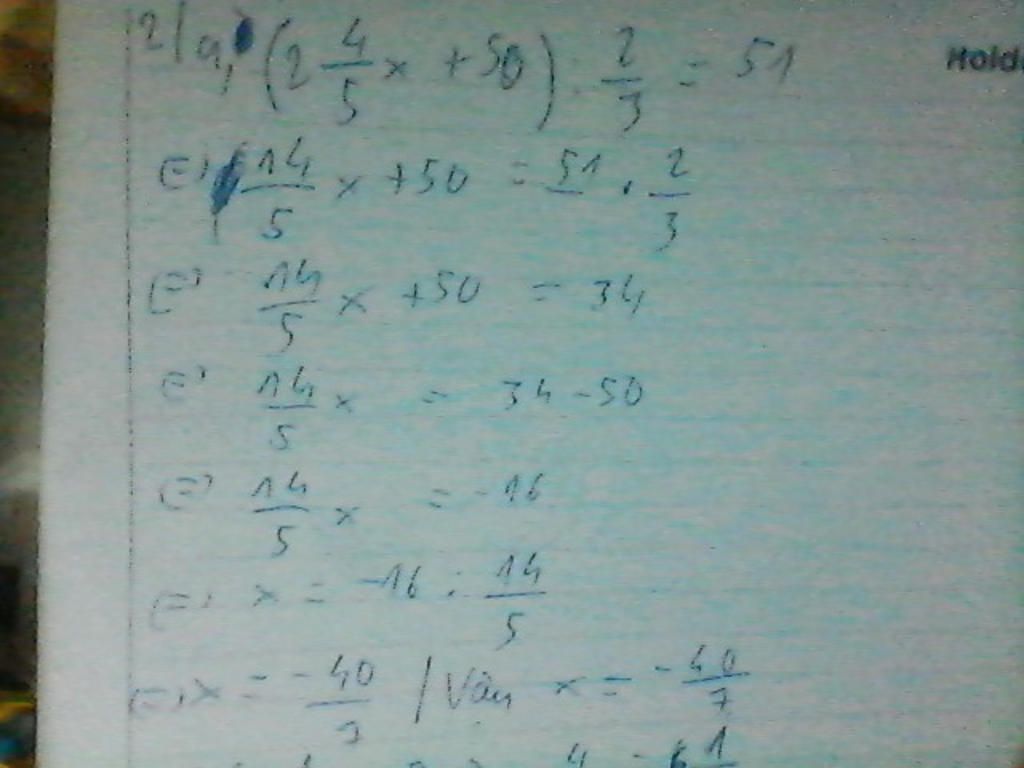 2/ a, (2 4/5 x + 50) : 2/3 = 51
Hold
⇔ 14/5 x + 50 = 51 . 2/3
⇔ 14/5 x + 50 = 34
⇔ 14/5 x = 34 - 50
⇔ 14/5 x = -16
⇔ x = -16 : 14/5
⇔ x = -40/7 / Vậy x = -40/7